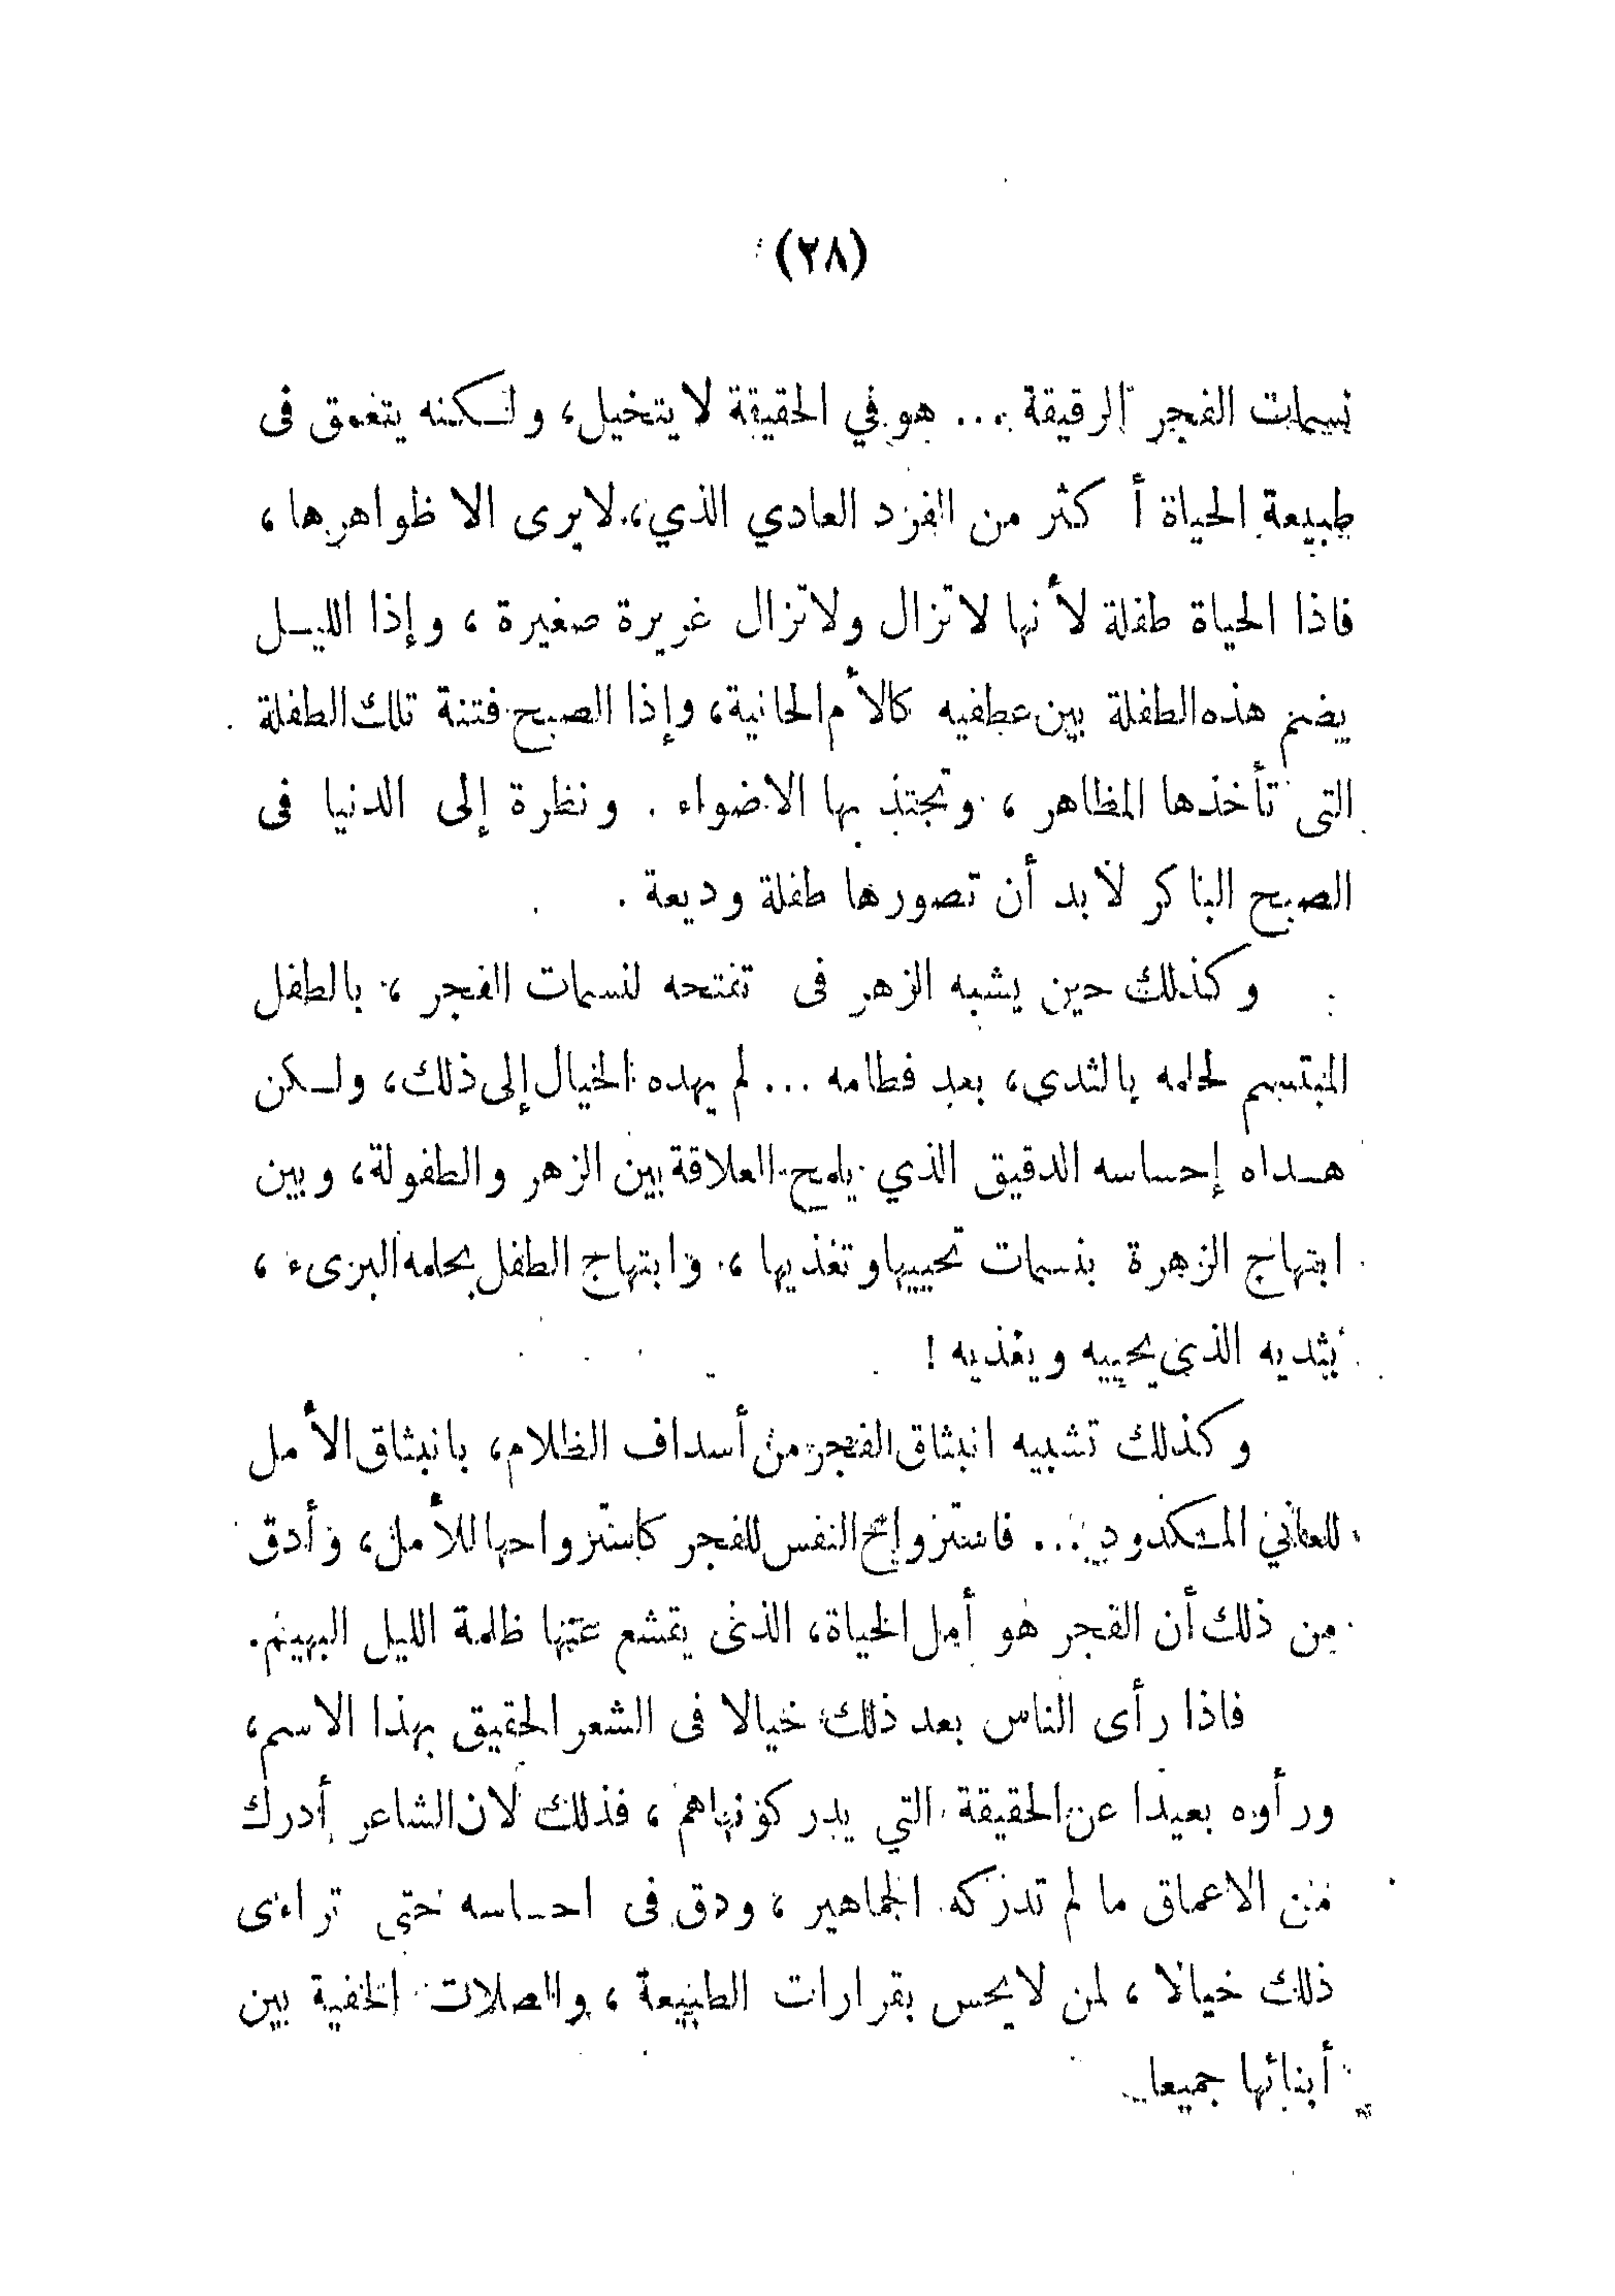 (٢٨)
نسمات الفجر الرقيقة ... هو في الحقيقة لا يتخيل، ولكنه يتعمق فى
طبيعة الحياة أكثر من الفرد العادي الذي، لا يرى الا ظواهرها،
فاذا الحياة طفلة لأنها لا تزال ولا تزال غريرة صغيرة، وإذا الليل
يضم هذه الطفلة بين عطفيه كالأم الحانية، وإذا الصبح فتنة تلك الطفلة
التى تأخذها المظاهر، وتجتذبها الاضواء. ونظرة إلى الدنيا فى
الصبح الباكر لا بد أن تصورها طفلة وديعة.
وكذلك حين يشبه الزهر فى تفتحه لنسمات الفجر، بالطفل
المبتسم لحلمه بالثدى، بعد فطامه ... لم يهده الخيال إلى ذلك، ولكن
هداه إحساسه الدقيق الذي يلمح العلاقة بين الزهر والطفولة، وبين
ابتهاج الزهرة بنسمات تحييها وتغذيها، وابتهاج الطفل بحلمه البرىء،
بثديه الذى يحييه ويغذيه!
وكذلك تشبيه انبثاق الفجر من أسداف الظلام، بانبثاق الأمل
للعاني المكدود ... فاسترواح النفس للفجر كاسترواحها للأمل، وأدق
من ذلك أن الفجر هو أمل الحياة، الذى يقشع عنها ظلمة الليل البهيم.
فاذا رأى الناس بعد ذلك خيالا فى الشعر الحقيق بهذا الاسم،
ورأوه بعيدا عن الحقيقة التي يدركونها هم، فذلك لان الشاعر أدرك
من الاعماق ما لم تدركه الجماهير، ودق فى احساسه حتى تراءى
ذلك خيالا، لمن لا يحس بقرارات الطبيعة، والصلات الخفية بين
أبنائها جميعا